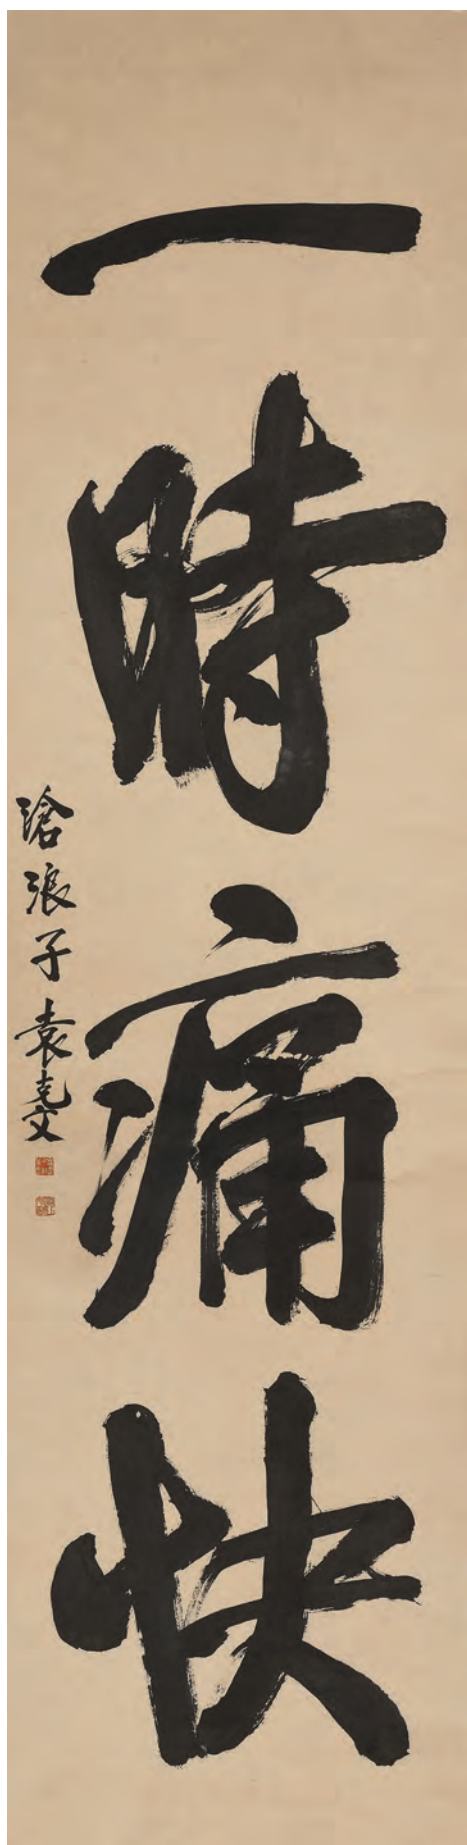 一時痛快
滄浪子袁克文